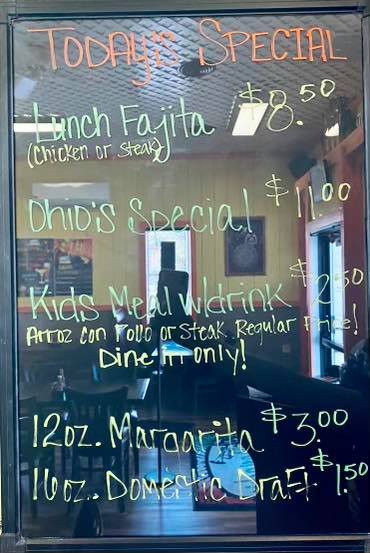 Today's Special
Lunch Fajita $8.50
(Chicken or Steak)
Ohio's Special $11.00
Kids Meal w/drink $2.50
Arroz con Pollo or Steak Regular Price!
Dine in only!
12oz. Margarita $3.00
16oz. Domestic Draft $1.50